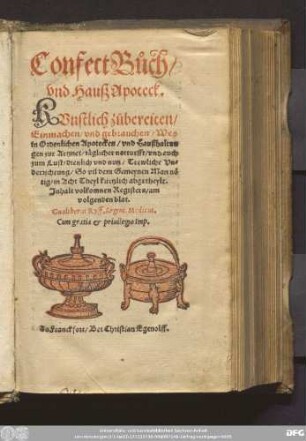 Confect Bůch/
vnd Hauß Apoteck.
KVnstlich zůbereiten/
Einmachen/ vnd gebrauchen/ Wes
in Ordenlichen Apotecken/ vnd Haußhaltun-
gen zur Artznei/ täglicher notturfft/ vnd auch
zum Lust/ dienlich vnd nutz/ Trewliche Vn-
derrichtung/ So vil dem Gemeynen Man nö-
tig/ in Acht Theyl kürtzlich abgetheylt.
Inhalt volkomnen Registers/ am
volgenden blat.
Gualtherus Ryff, Argent. Medicus.
Cum gratia & priuilegio Imp.
Zu Franckfurt/ Bei Christian Egenolff.
DFG